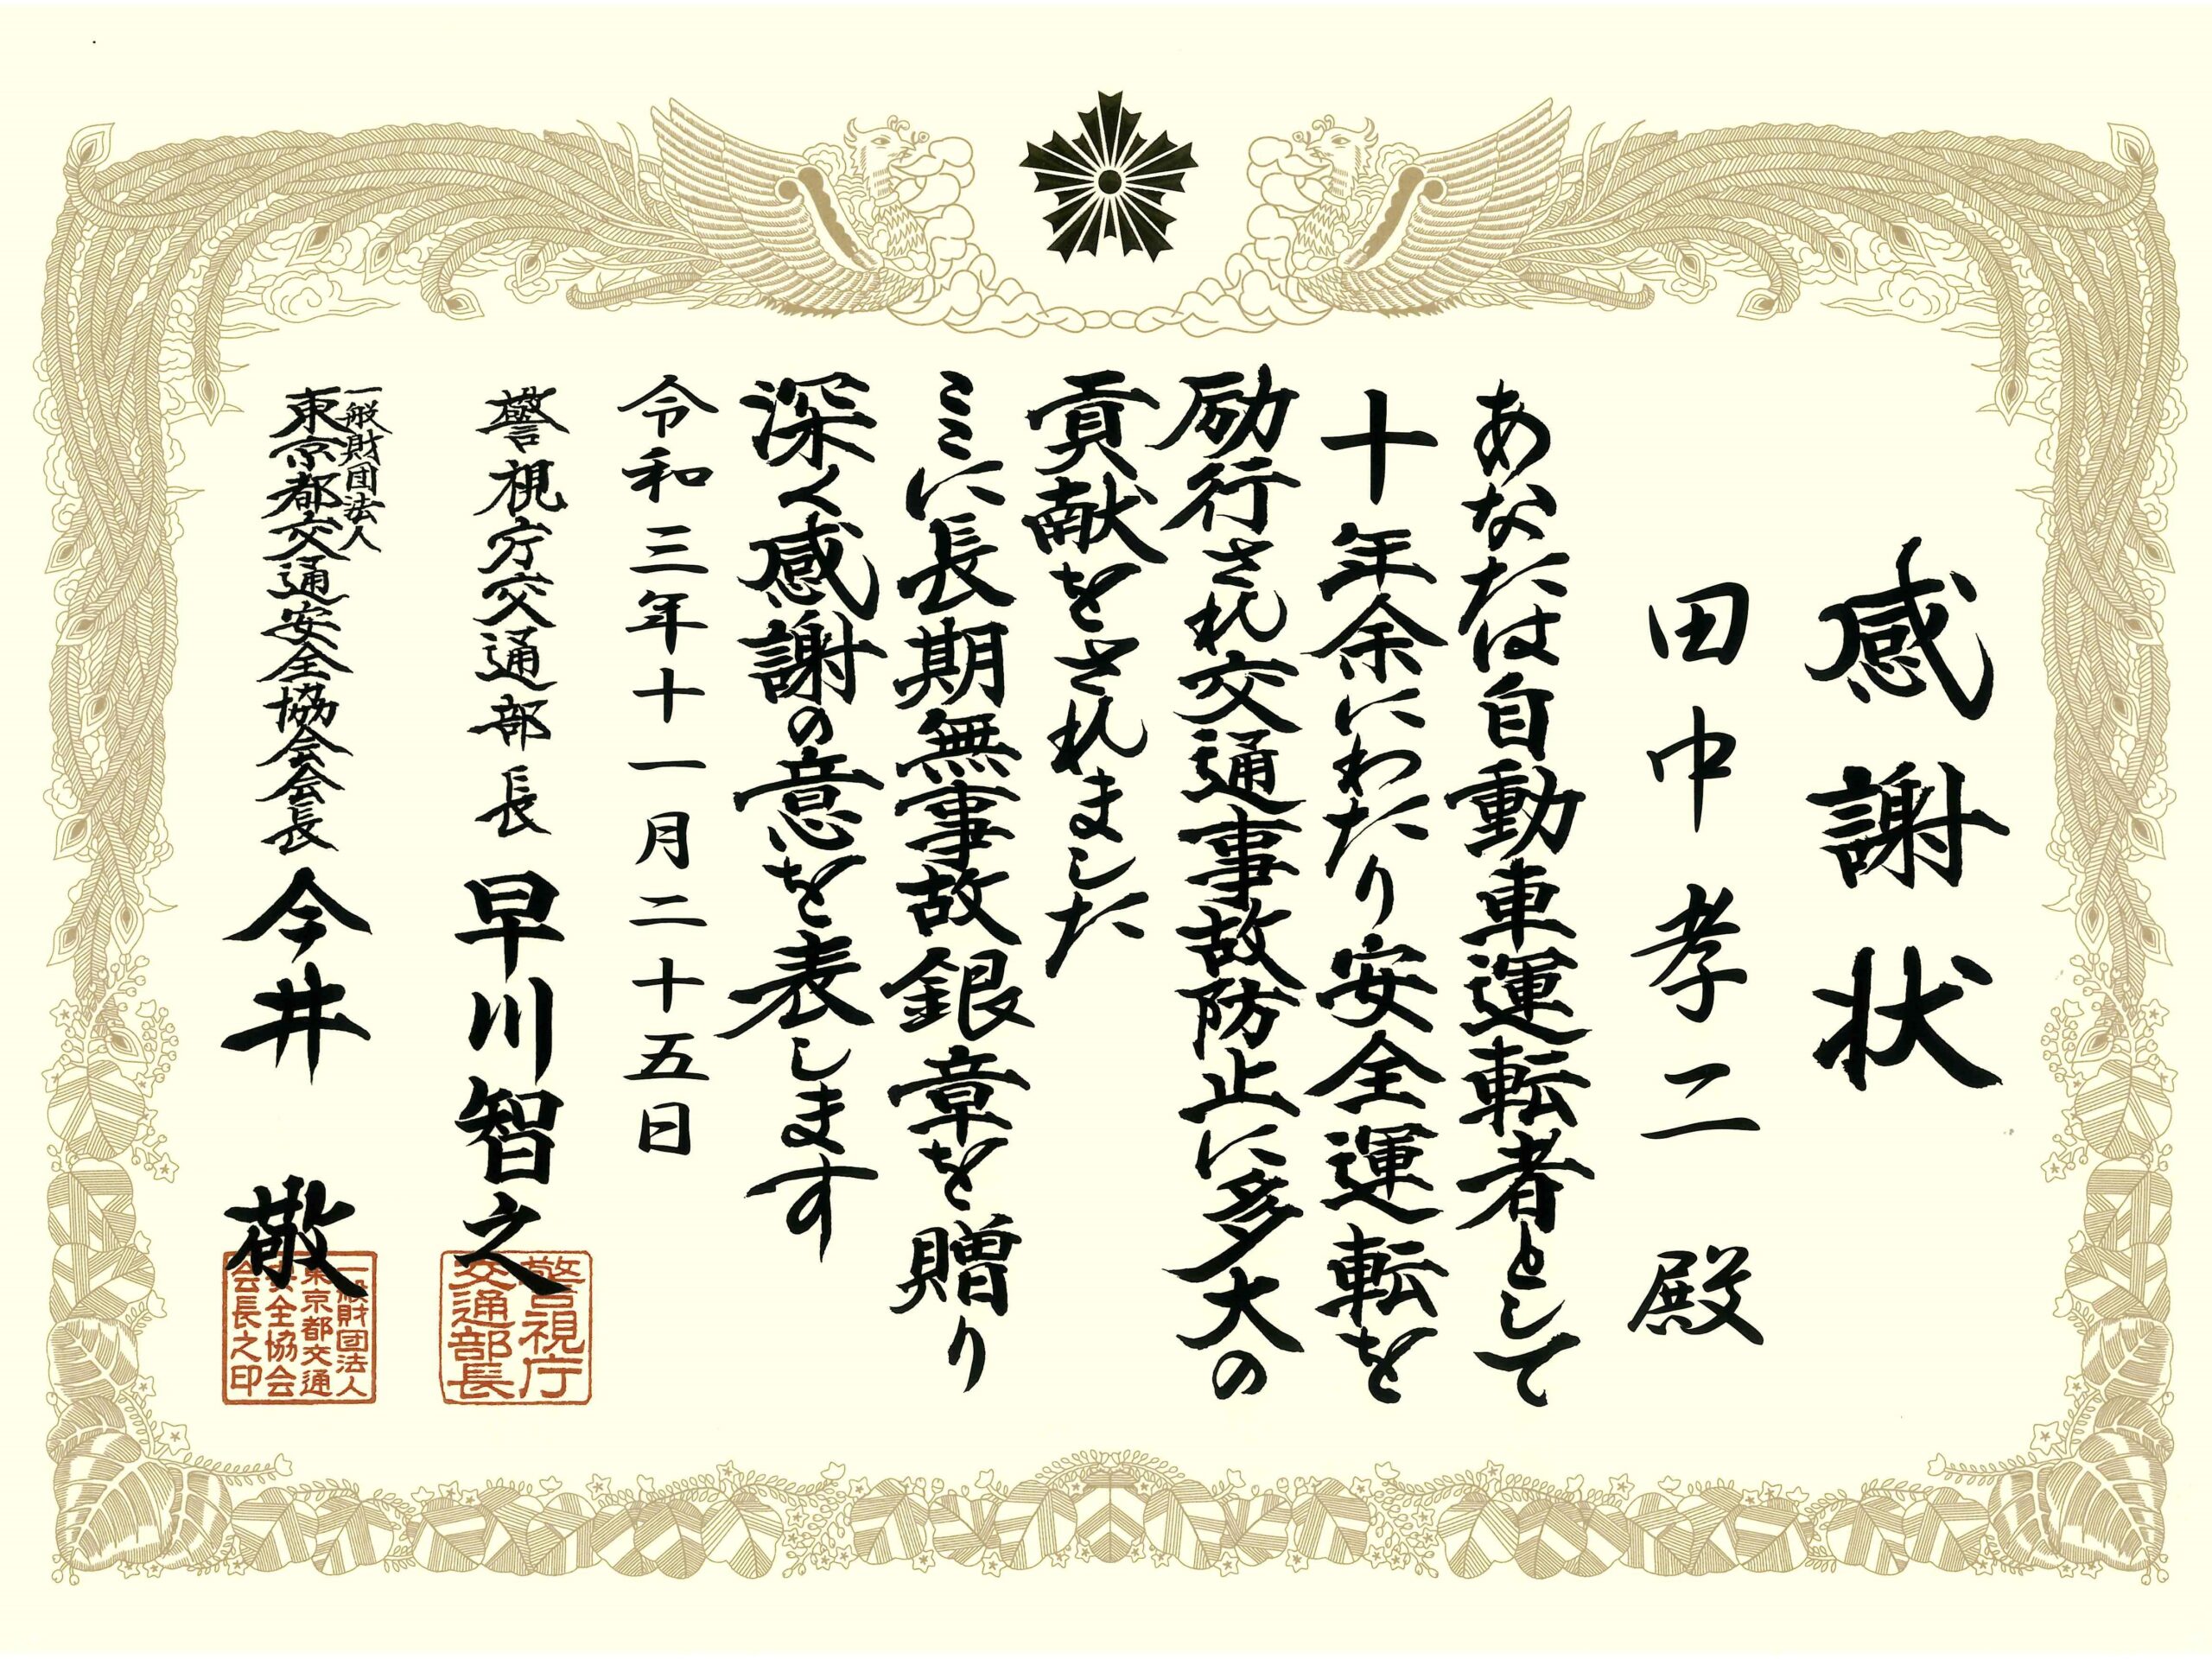 感謝状
田中孝二 殿
あなたは自動車運転者として
十年余にわたり安全運転を
励行され交通事故防止に多大の
貢献をされました
ここに長期無事故銀章を贈り
深く感謝の意を表します
令和三年十一月二十五日
警視庁交通部長 早川智之
警視庁
交通部長
一般財団法人
東京都交通安全協会会長 今井 敬
一般財団法人
東京都交通
安全協会
会長之印